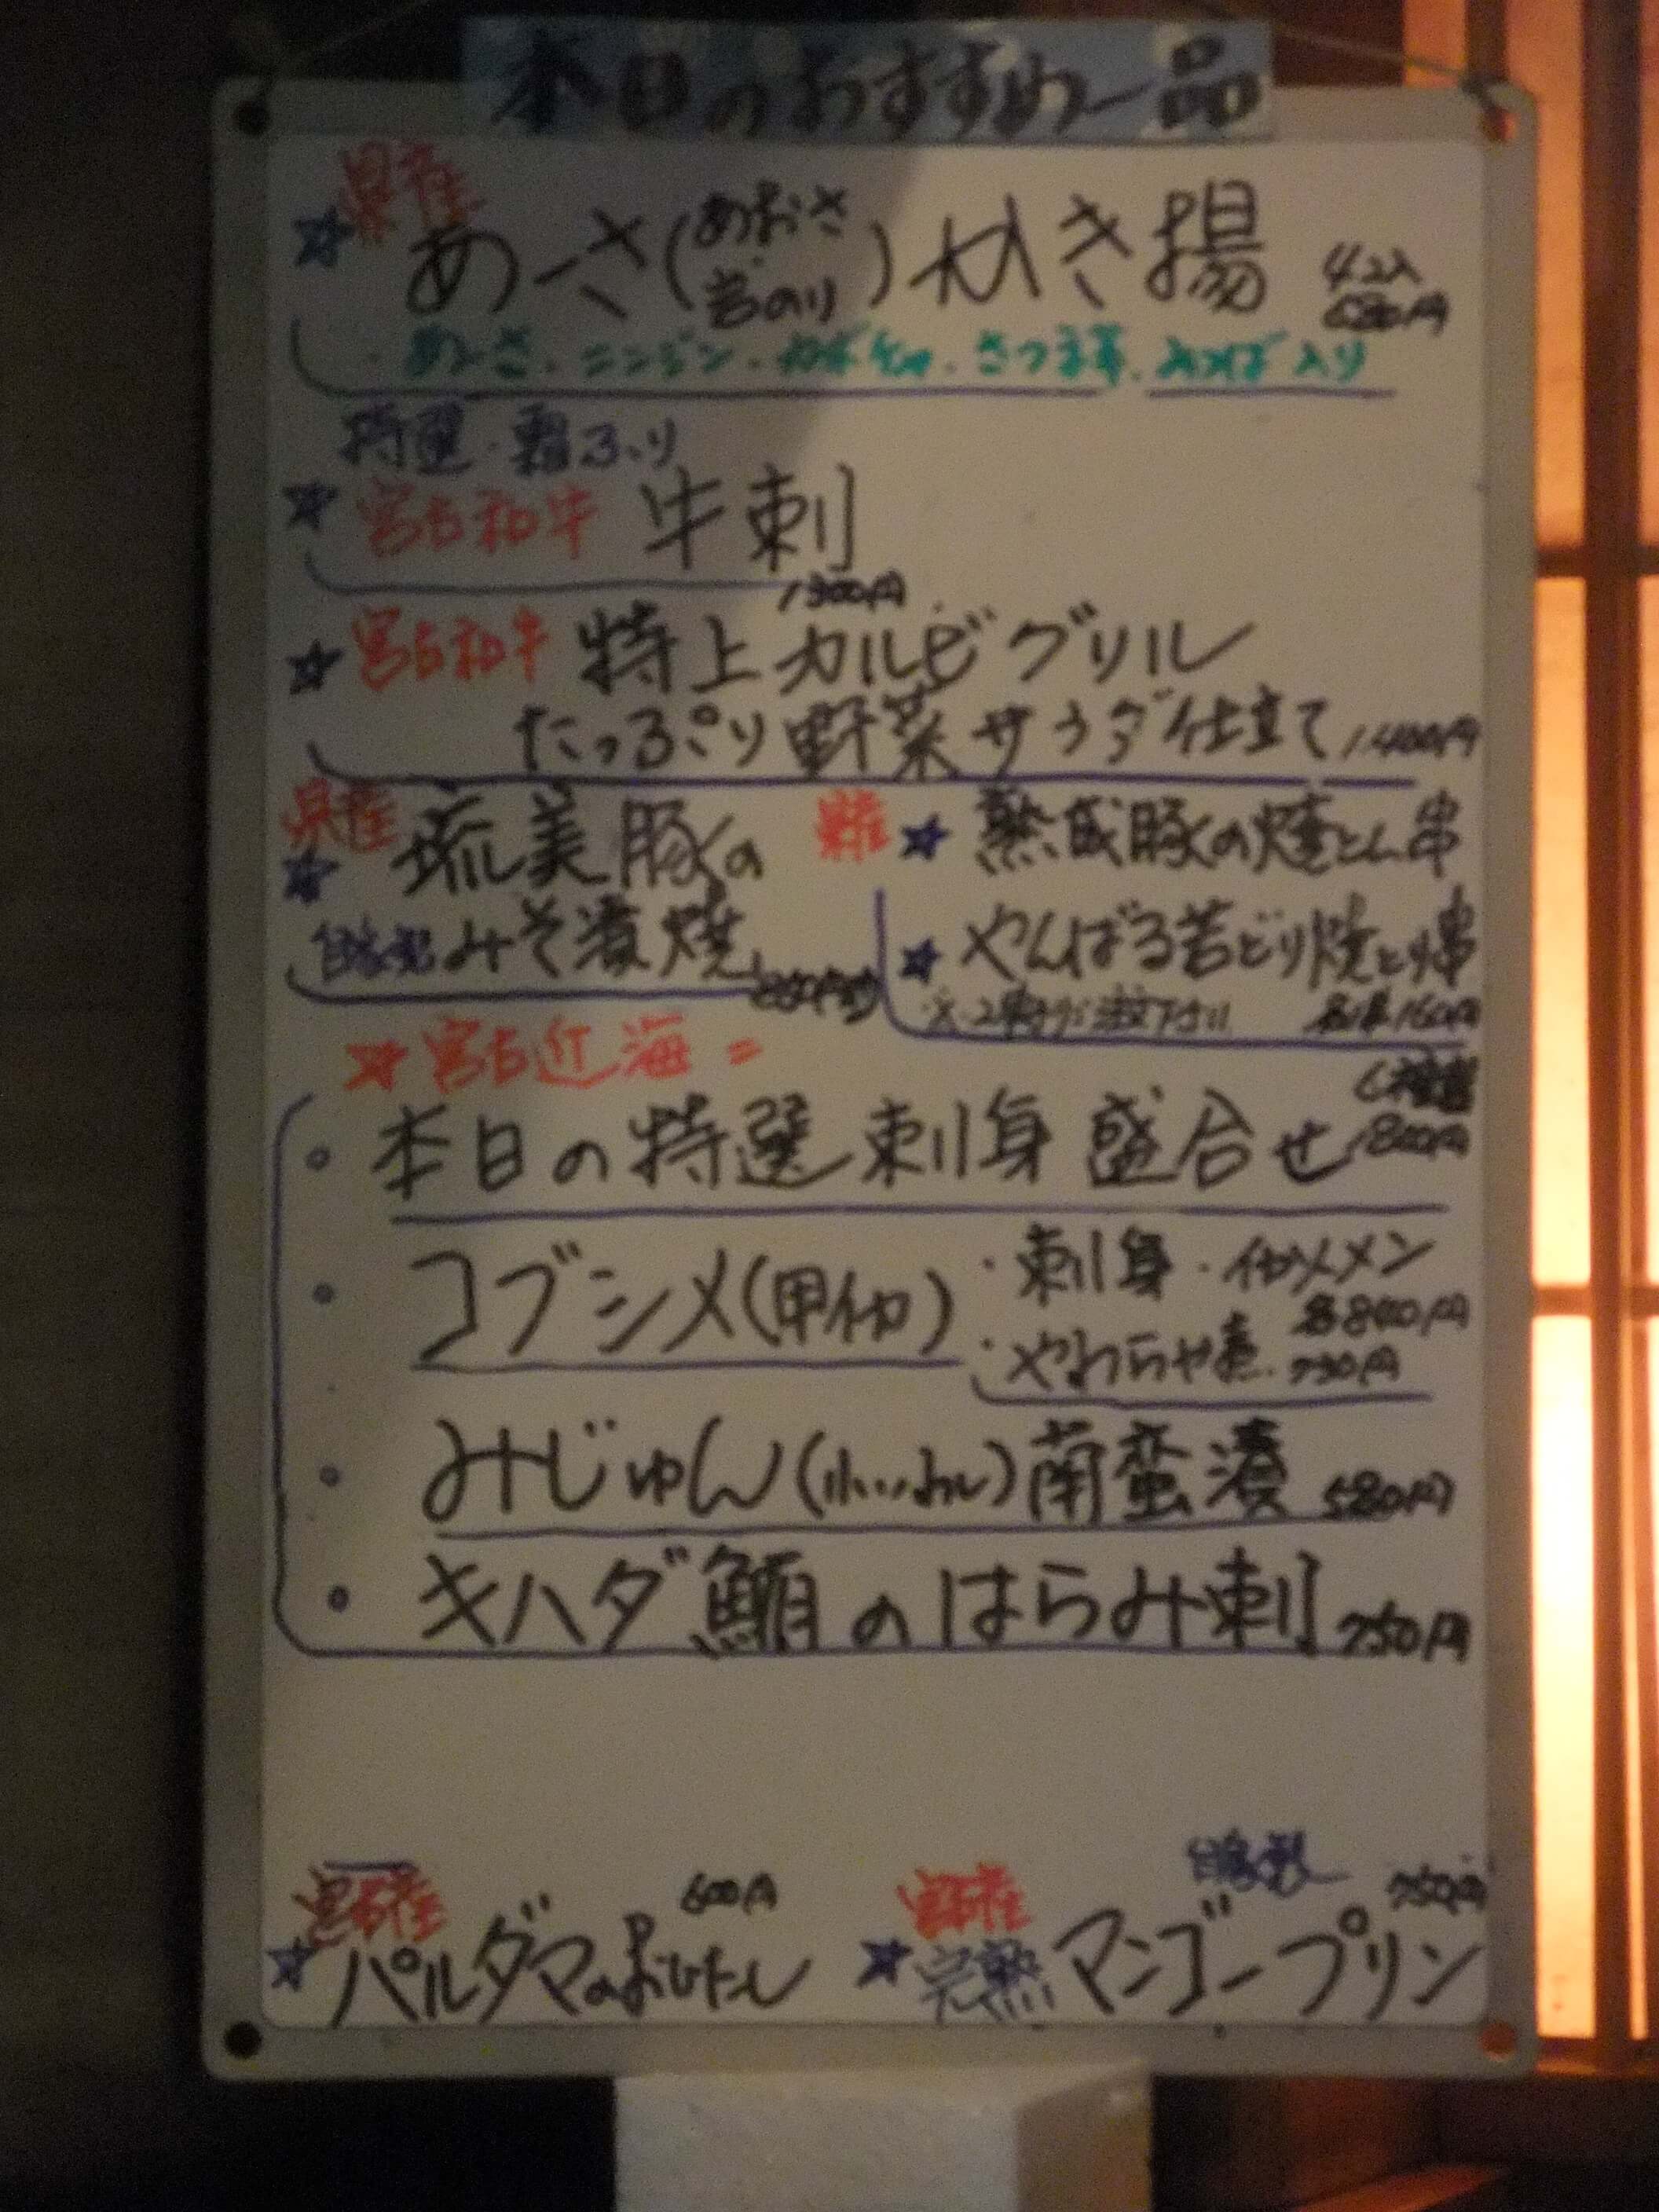 本日のおすすめ一品
県産
☆ あーさ(あおさ 岩のり)かき揚 4コ入
680円
・あーさ・ニンジン・カボチャ・さつま芋・みつば入り
特選・霜ふり
☆ 宮古和牛 牛刺
1300円
☆ 宮古和牛 特上カルビグリル
たっぷり野菜サラダ仕立て 1400円
県産
☆ 琉美豚の
自家製 みそ漬焼
県産 ☆ 熟成豚の焼とん串
☆ やんばる若どり焼とり串
各1本160円
☆ 宮古近海=
・本日の特選刺身盛合せ 1800円
・コブシメ(甲イカ)
・刺身・イカメメン
各800円
・やわらか煮 730円
・みじゅん(小いわし)南蛮漬 580円
・キハダ鮪のはらみ刺 750円
宮古産
☆ パルダマのおひたし 600円
宮古産 自家製
☆ 完熟マンゴープリン 750円